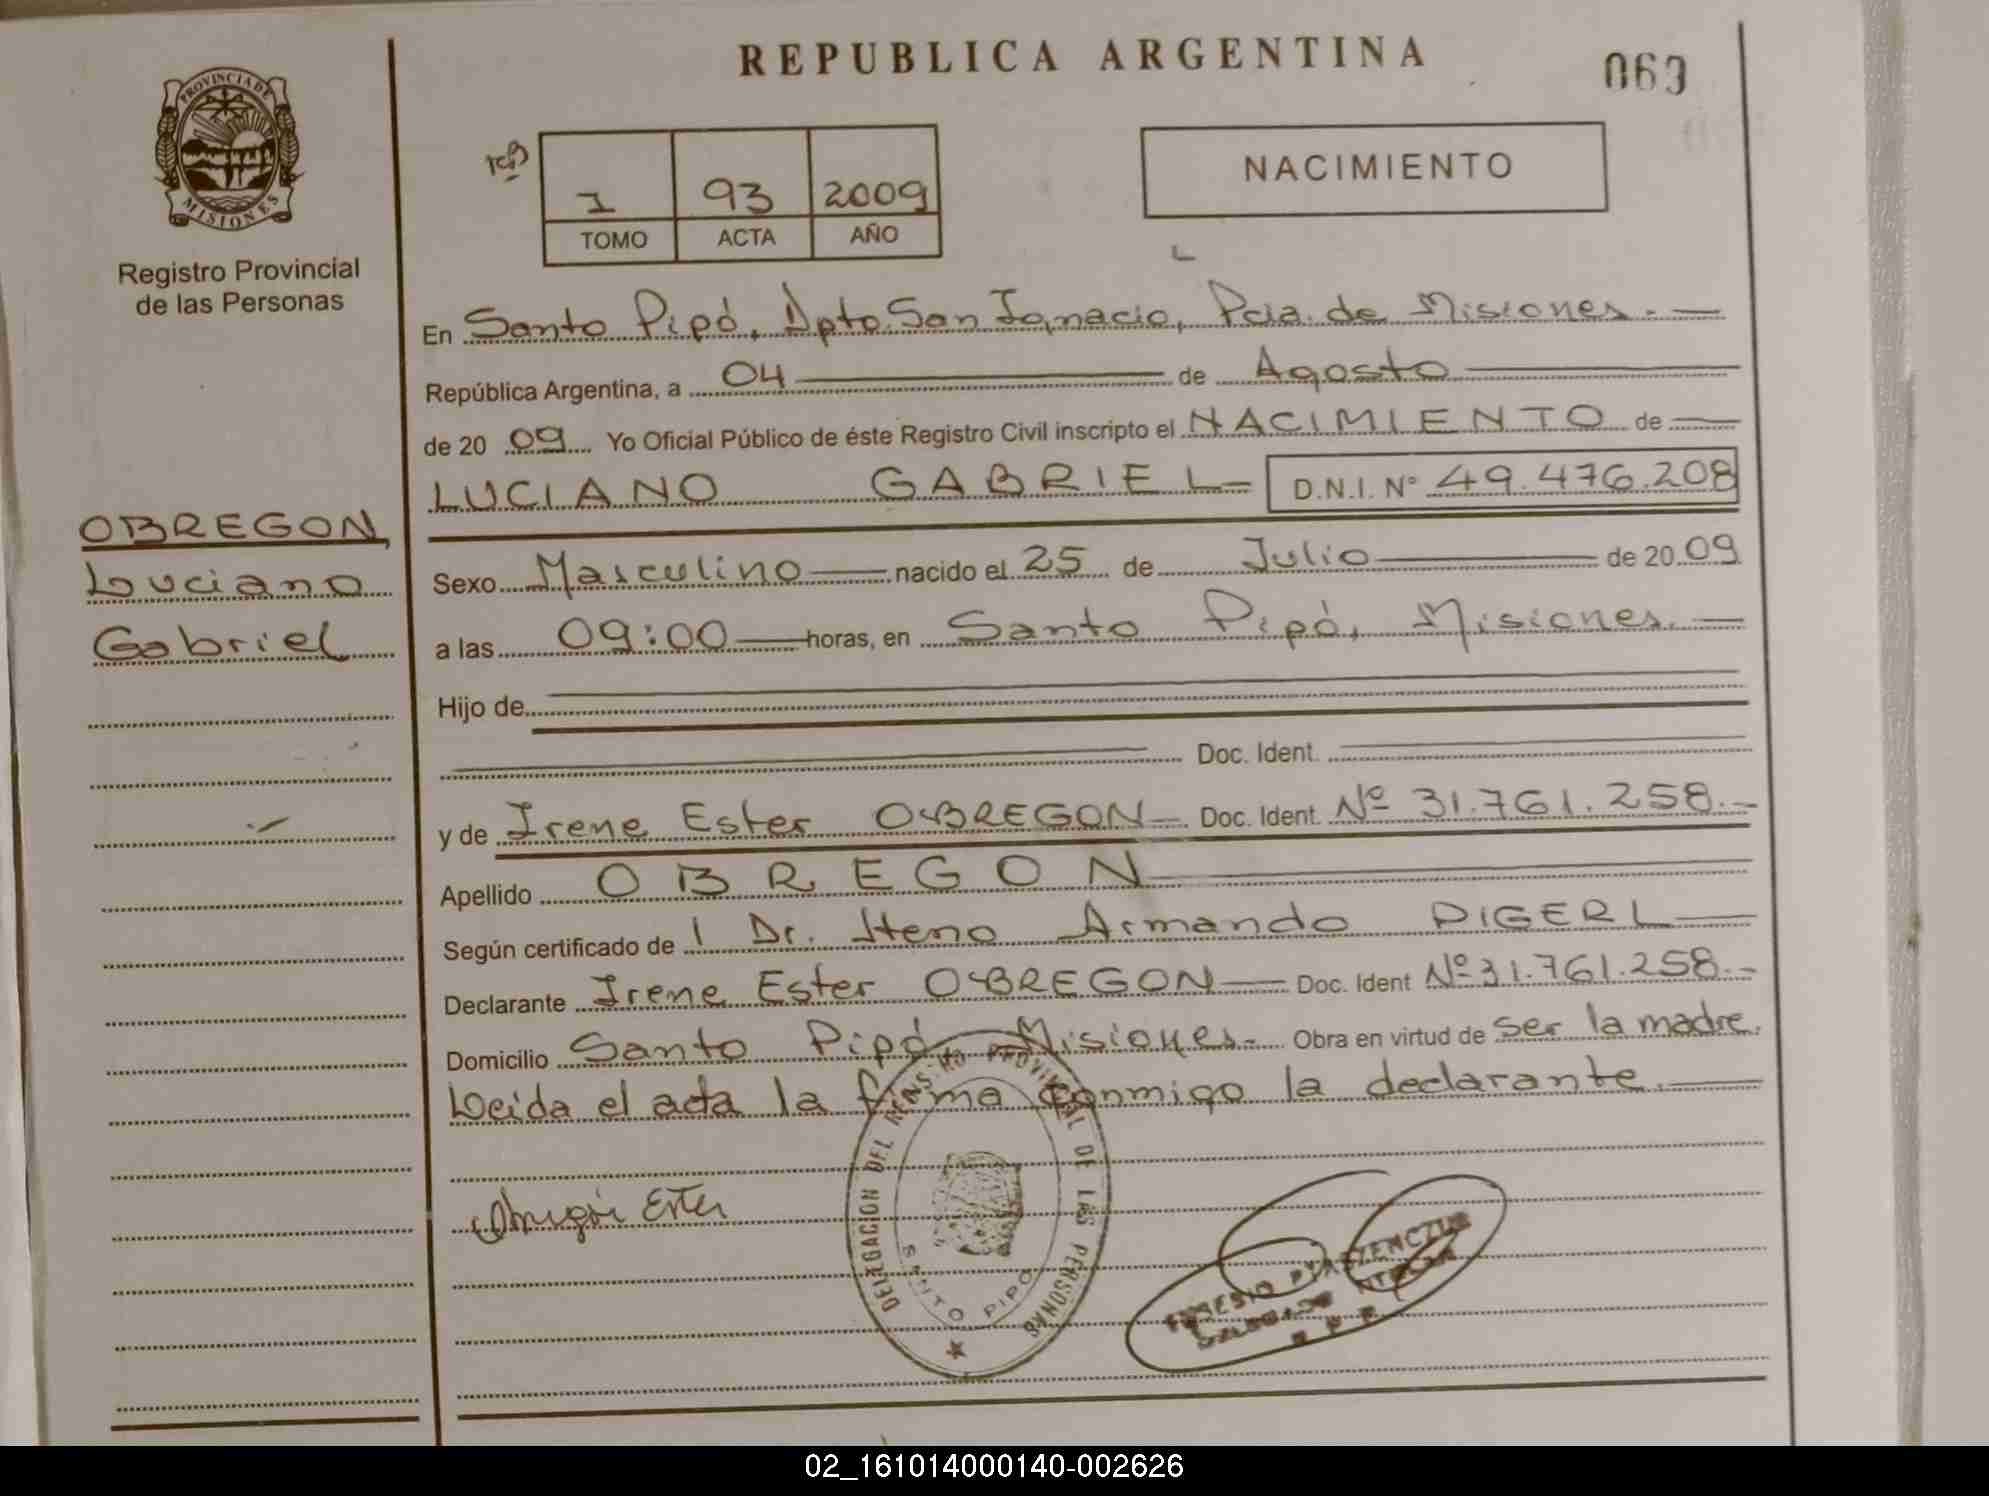 REPUBLICA ARGENTINA
063
PROVINCIA DE
MISIONES
Registro Provincial
de las Personas
I 93 2009
TOMO ACTA AÑO
NACIMIENTO
En Santo Pipó, Dpto. San Ignacio, Pcia. de Misiones.
República Argentina, a 04 de Agosto
de 2009 Yo Oficial Público de éste Registro Civil inscripto el NACIMIENTO de
LUCIANO GABRIEL D.N.I. Nº 49.476.208
OBREGON,
Luciano
Gabriel
Sexo Masculino nacido el 25 de Julio de 2009
a las 09:00 horas, en Santo Pipó, Misiones.
Hijo de
Doc. Ident.
y de Irene Ester OBREGON Doc. Ident. Nº 31.761.258.-
Apellido OBREGON
Según certificado de l Dr. Heno Armando DIGERL
Declarante Irene Ester OBREGON Doc. Ident Nº 31.761.258.-
Domicilio Santo Pipó Misiones.- Obra en virtud de ser la madre.
Leida el acta la firma conmigo la declarante.
Ester
DELEGACION DEL PROVINCIAL DE LAS PERSONAS
SANTO PIPO
02_161014000140-002626